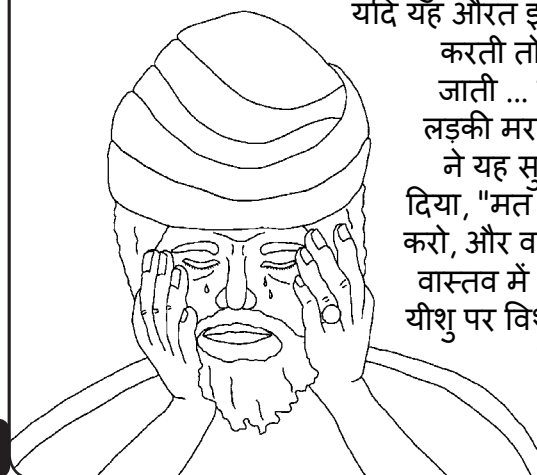 यदि यँह औरत
करती तो
जाती ...
लड़की मर
ने यह
दिया, "मत
करो, और
वास्तव में
यीशु पर